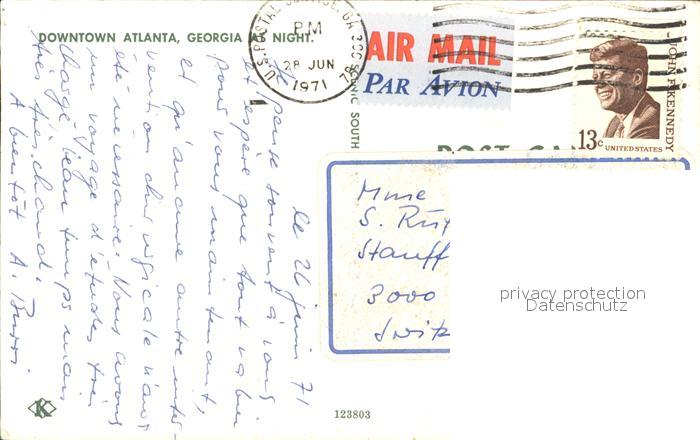 DOWNTOWN ATLANTA, GEORGIA AT NIGHT.
U.S. POSTAL SERVICE, GA 300
PM
28 JUN
1971
AIR MAIL
PAR AVION
JOHN F. KENNEDY
13c UNITED STATES
SCENIC SOUTH
POST CARD
Mme
S.
Stauff
3000
privacy protection
Datenschutz
le 26 juin 71
Je pense souvent à vous
et espère que tout va bien
pour vous maintenant,
et qu'aucune autre inter-
vention chirurgicale n'avait
été nécessaire. Nous avons
un voyage d'études très
chargé, beau temps mais
très très chaud.
A bientôt A.
K
123803